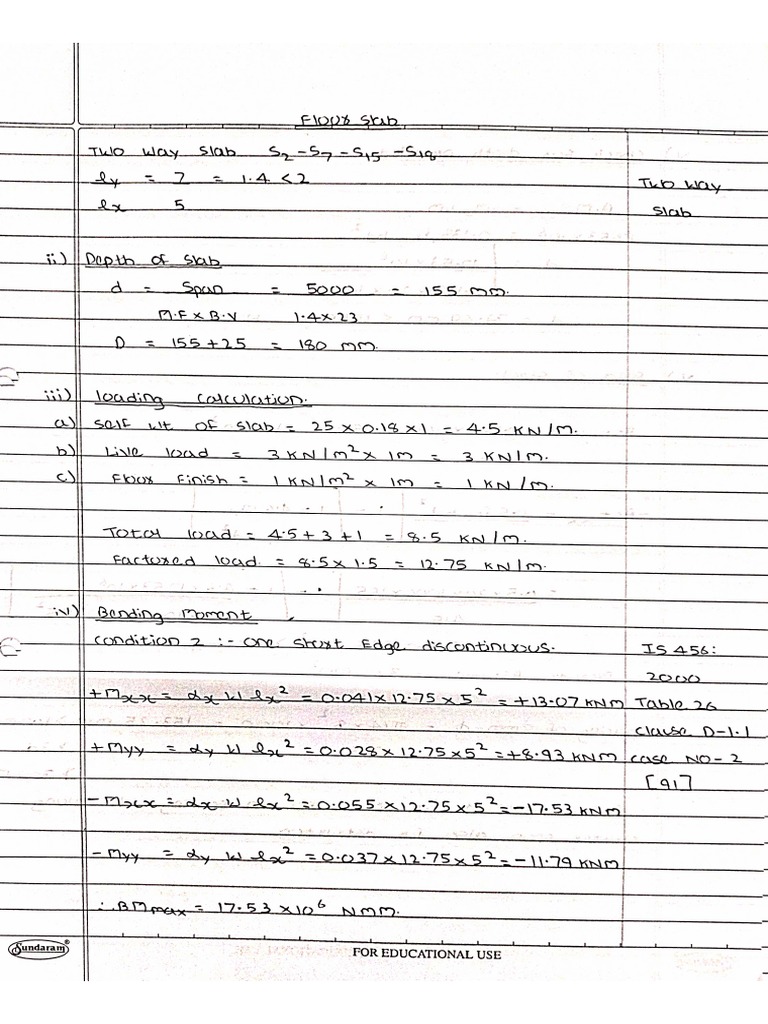 Floor Slab
Two Way Slab S2-S7-S15-S18
ly = 7 = 1.4 < 2 Two Way
lx 5 Slab
ii) Depth of slab
d = Span = 5000 = 155 mm.
M.F x B.V 1.4x23
D = 155+25 = 180 mm.
iii) loading calculation.
a) self wt of slab = 25 x 0.18 x 1 = 4.5 KN/m.
b) Live load = 3 KN/m² x 1m = 3 KN/m.
c) Floor Finish = 1 KN/m² x 1m = 1 KN/m.
Total load = 4.5+3+1 = 8.5 KN/m.
Factored load = 8.5 x 1.5 = 12.75 KN/m.
iv) Bending Moment
Condition 2 :- One short Edge discontinuous. IS 456:
2000
+Mxx = αx W lx² = 0.041 x 12.75 x 5² = +13.07 KNM Table 26
clause D-1.1
+Myy = αy W lx² = 0.028 x 12.75 x 5² = +8.93 KNM case NO-2
[91]
-Mxx = αx W lx² = 0.055 x 12.75 x 5² = -17.53 KNM
-Myy = αy W lx² = 0.037 x 12.75 x 5² = -11.79 KNM
∴ BMmax = 17.53 x 10⁶ NMM.
Sundaram®
FOR EDUCATIONAL USE